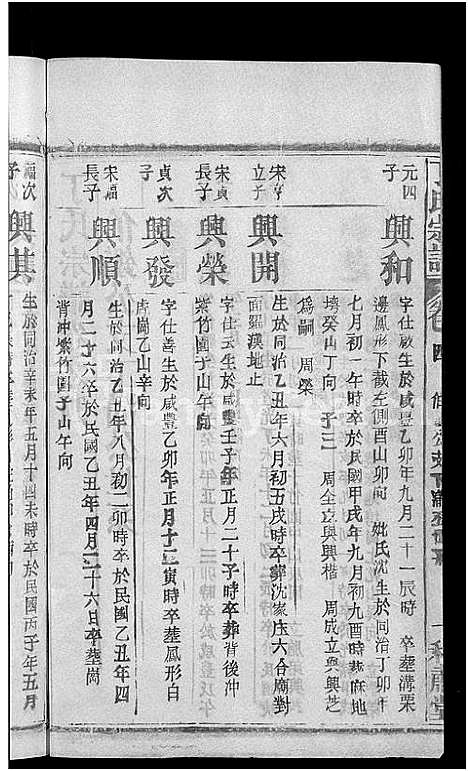 丁氏宗譜
卷四
元四子
興和
字仕啟生於咸豐乙卯年九月二十一辰時 卒塟溝栗
邊鳳形下截左側酉山卯向 妣氏沈生於同治丁卯年
七月初一午時卒於民國甲戌年九月初九酉時塟麻地
墳癸山丁向 子三 周全立與興楷 周成立與興芝
為嗣 周榮
宋亨立子
興開
生於同治乙丑年六月初五戌時卒塟沈家庄六合廟對
面羅漢地止
宋貞長子
興榮
字仕 生於咸豐壬子年正月二十子時卒葬背後沖
紫竹園子山午向
貞次子
興發
字仕善生於咸豐乙卯年正月十二寅時卒塟鳳形白
虎圖乙山辛向
宋福長子
興順
生於同治乙丑年八月初二卯時卒於民國乙丑年四
月二十六卒於民國乙丑年四月二十六日卒塟崗
背沖紫竹園子山午向
福次子
興其
生於同治辛未年五月十四未時卒於民國丙子年五月